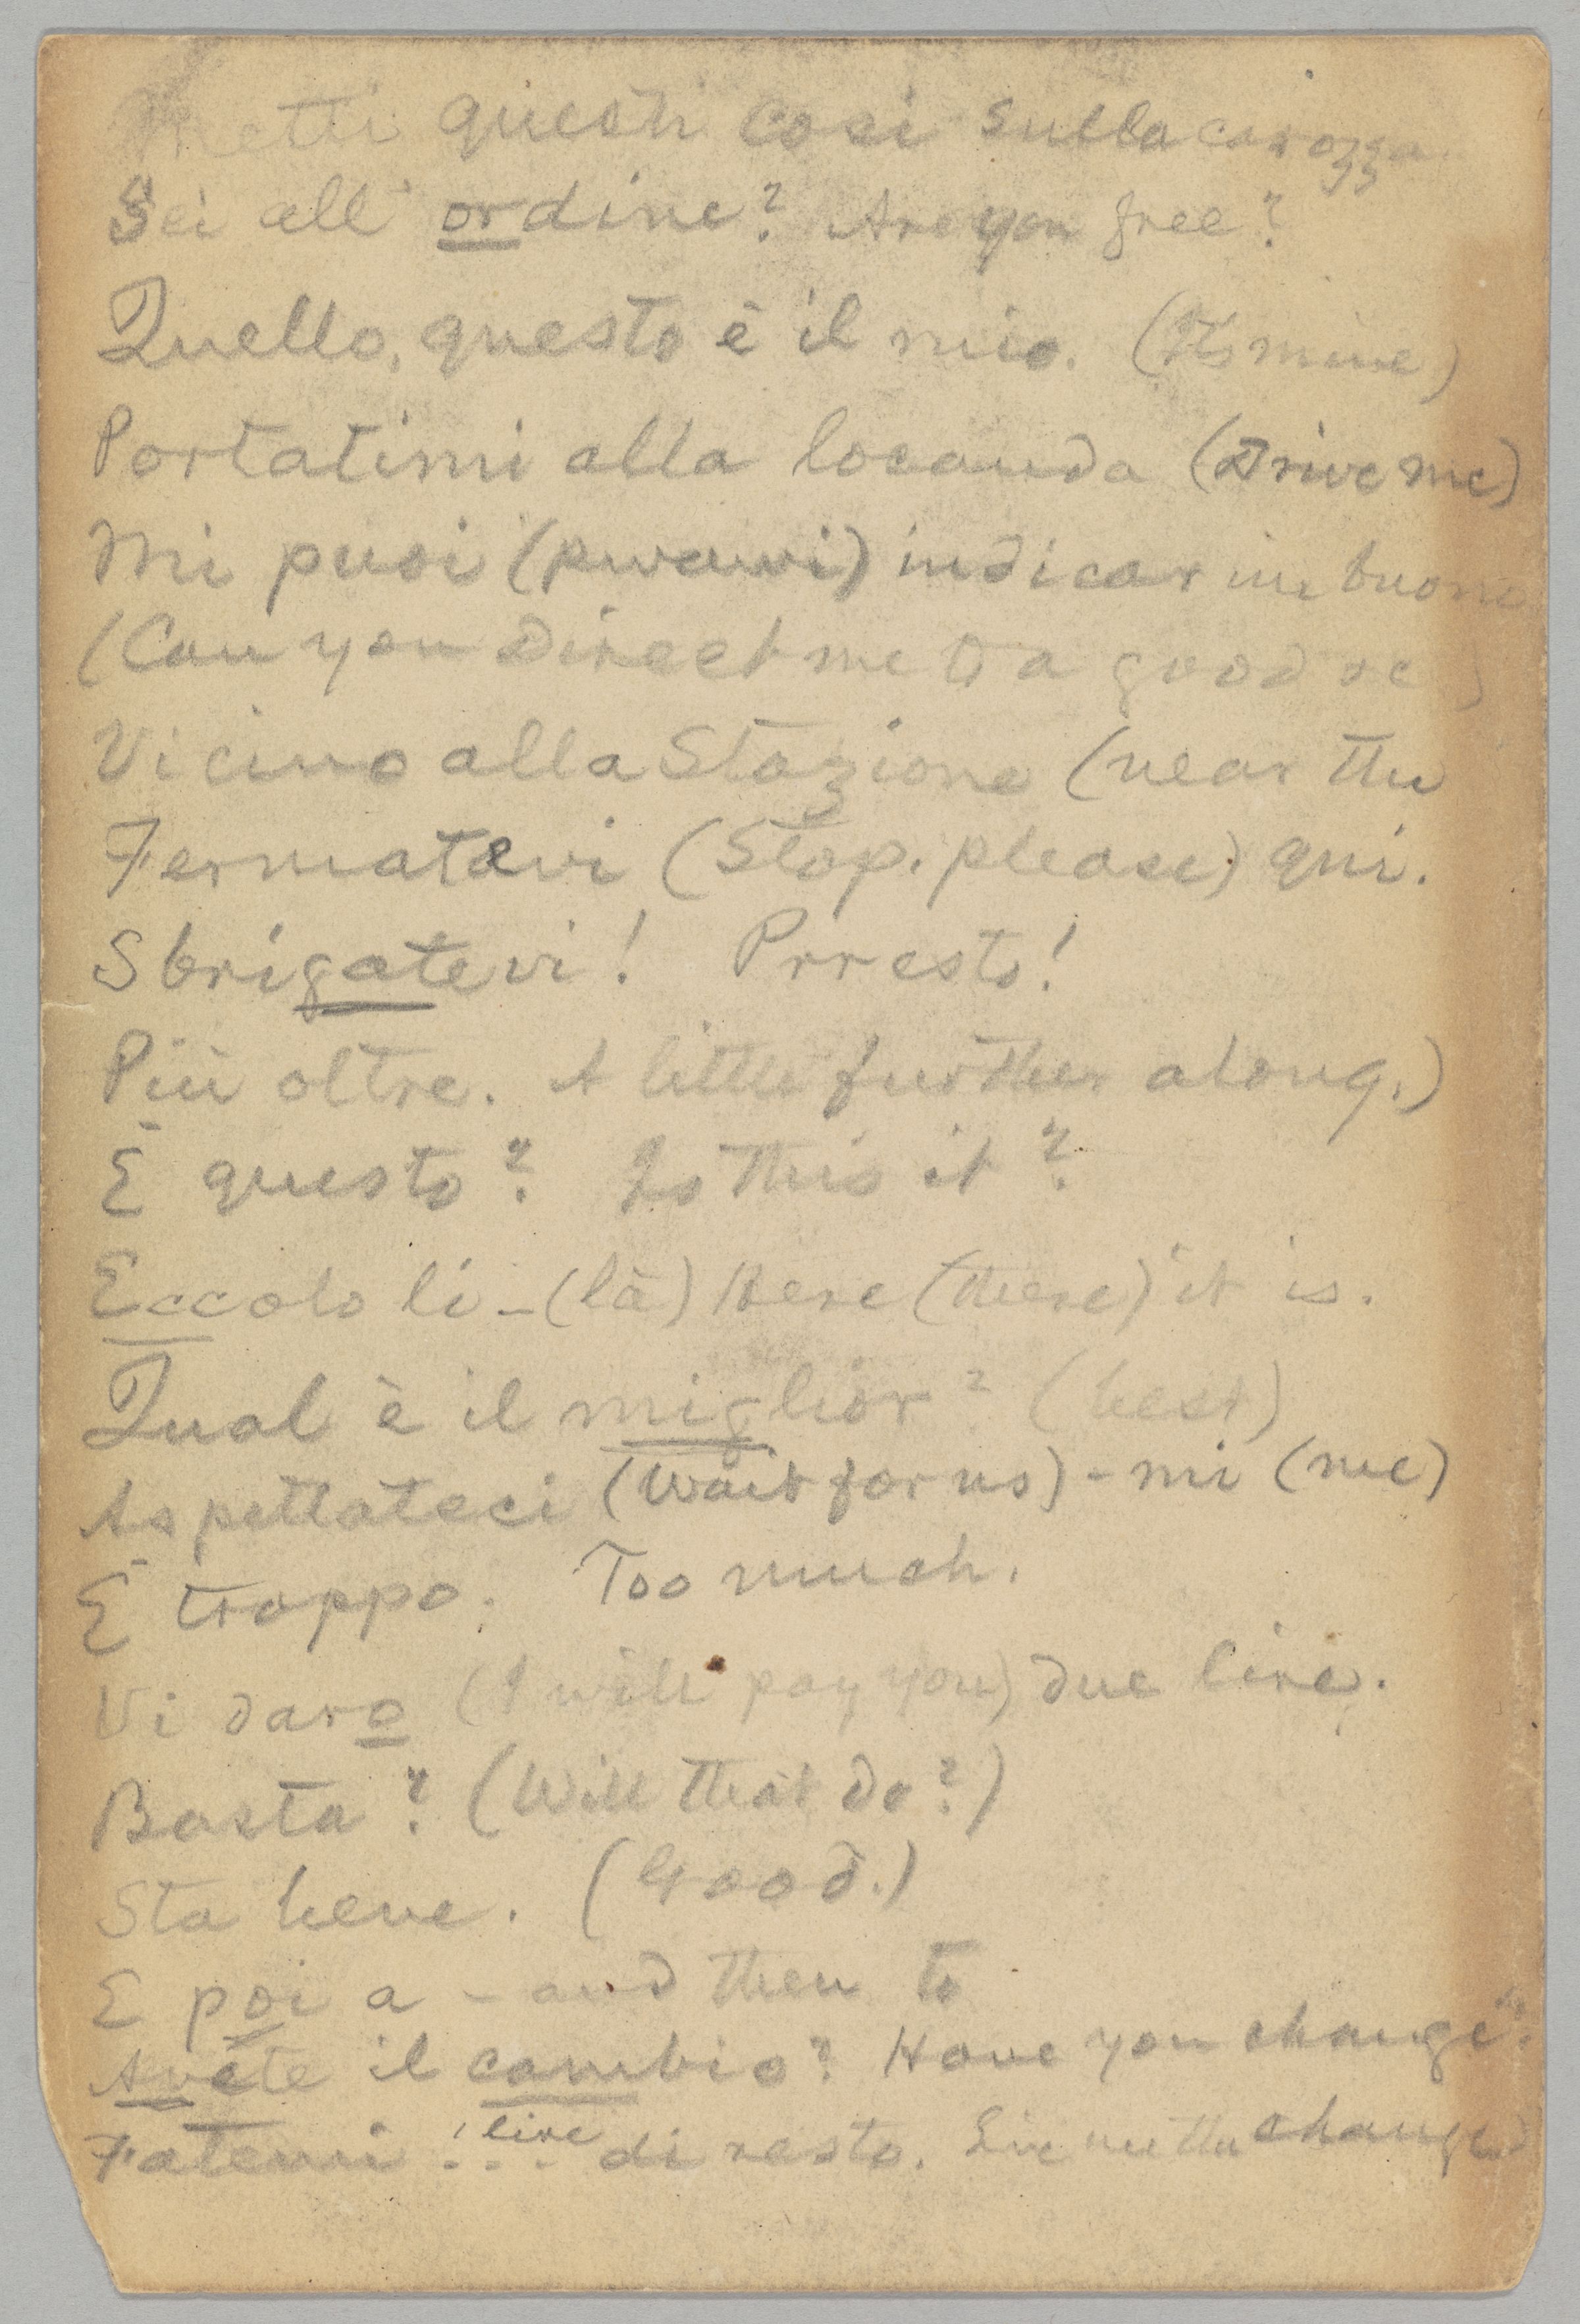 Metti questi cosi sulla carozza.
Sei all' ordine? Are you free?
Quello, questo è il mio. (Its mine)
Portatimi alla locanda (Drive me)
Mi puoi (pwawi) indicar un buono
(Can you direct me to a good re )
Vicino alla Stazione (near the
Fermatevi (Stop. please) qui.
Sbrigatevi! Prresto!
Più oltre. A little further along.)
È questo? Is this it?
Eccolo li - (là) Here (there) it is.
Qual è il miglior? (best)
Aspettateci (Wait for us) - mi (me)
È troppo. Too much.
Vi daro (I will pay you) due lire.
Basta? (Will that do?)
Sta bene. (Good.)
E poi a - and then to
Avete il cambio? Have you change?
Fatemi ... lire di resto. Give me the change